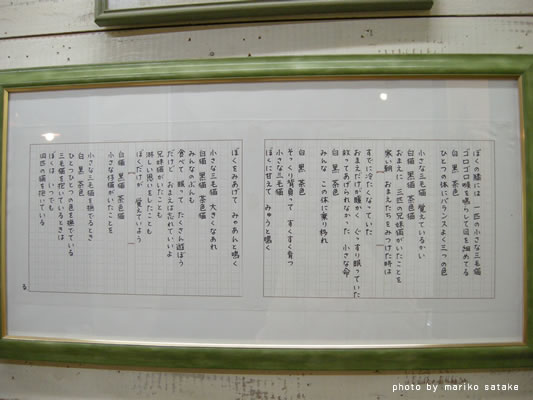 ぼくの膝には 一匹の小さな三毛猫
ゴロゴロ喉を鳴らして目を細めてる
ひとつの体にバランスよく三つの色
白 黒 茶色
小さな三毛猫 覚えているかい
白猫 黒猫 茶色猫
おまえに 三匹の兄妹猫がいたことを
寒い朝 おまえたちをみつけた時は
すでに冷たくなっていた
おまえだけが暖かく ぐっすり眠っていた
救ってあげられなかった 小さな命
白 黒 茶色
みんな この体に乗り移れ
そっくり背負って すくすく育つ
小さな三毛猫
ぼくに甘えて みゅうと鳴く
ぼくをみあげて みゃあんと鳴く
小さな三毛猫 大きくなあれ
白猫 黒猫 茶色猫
みんなのぶんも
食べて 眠って たくさん遊ぼう
だけど おまえは忘れていいよ
兄妹猫がいたことも
淋しい思いをしたことも
ぼくだけが 覚えていよう
白猫 黒猫 茶色猫
小さな仔猫がいたことを
小さな三毛猫を撫でるとき
白 黒 茶色
ひとつひとつの色を撫でている
三毛猫を抱いているときは
ぼくは いつでも
四匹の猫を抱いている
photo by mariko satake